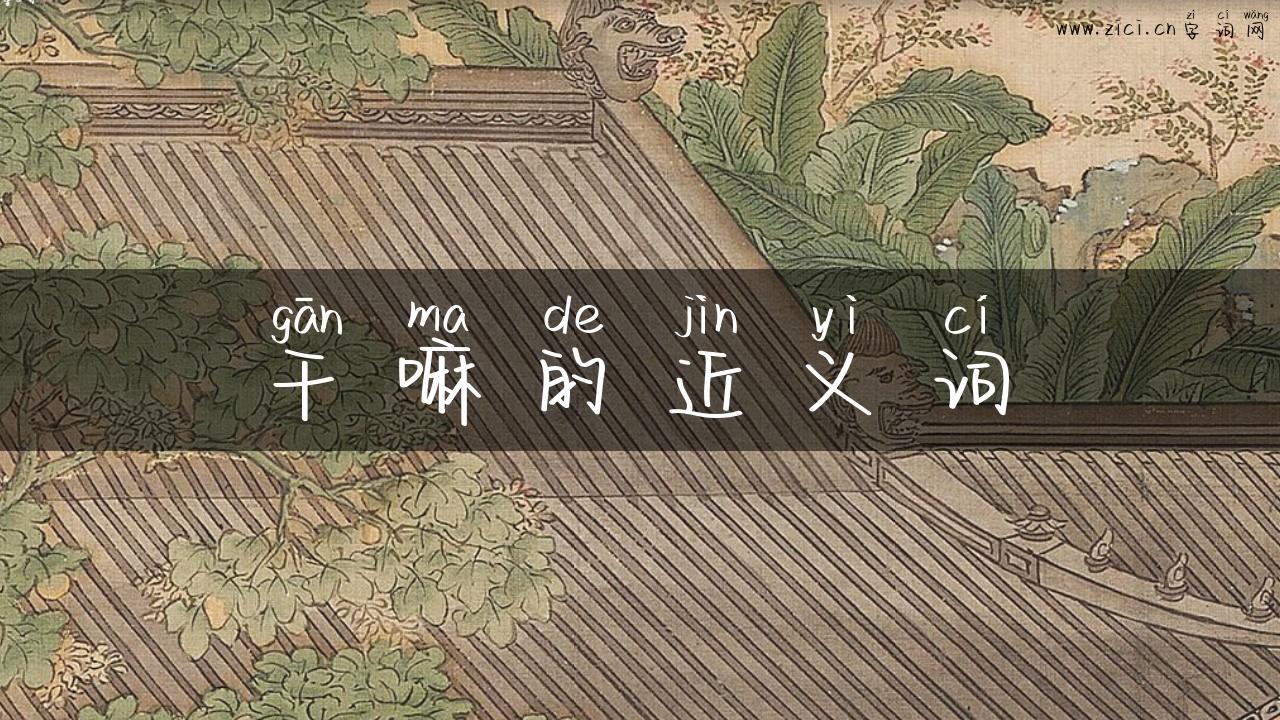 zì cí wǎng
www.zici.cn 字词网
gān ma de jìn yì cí
干嘛的近义词